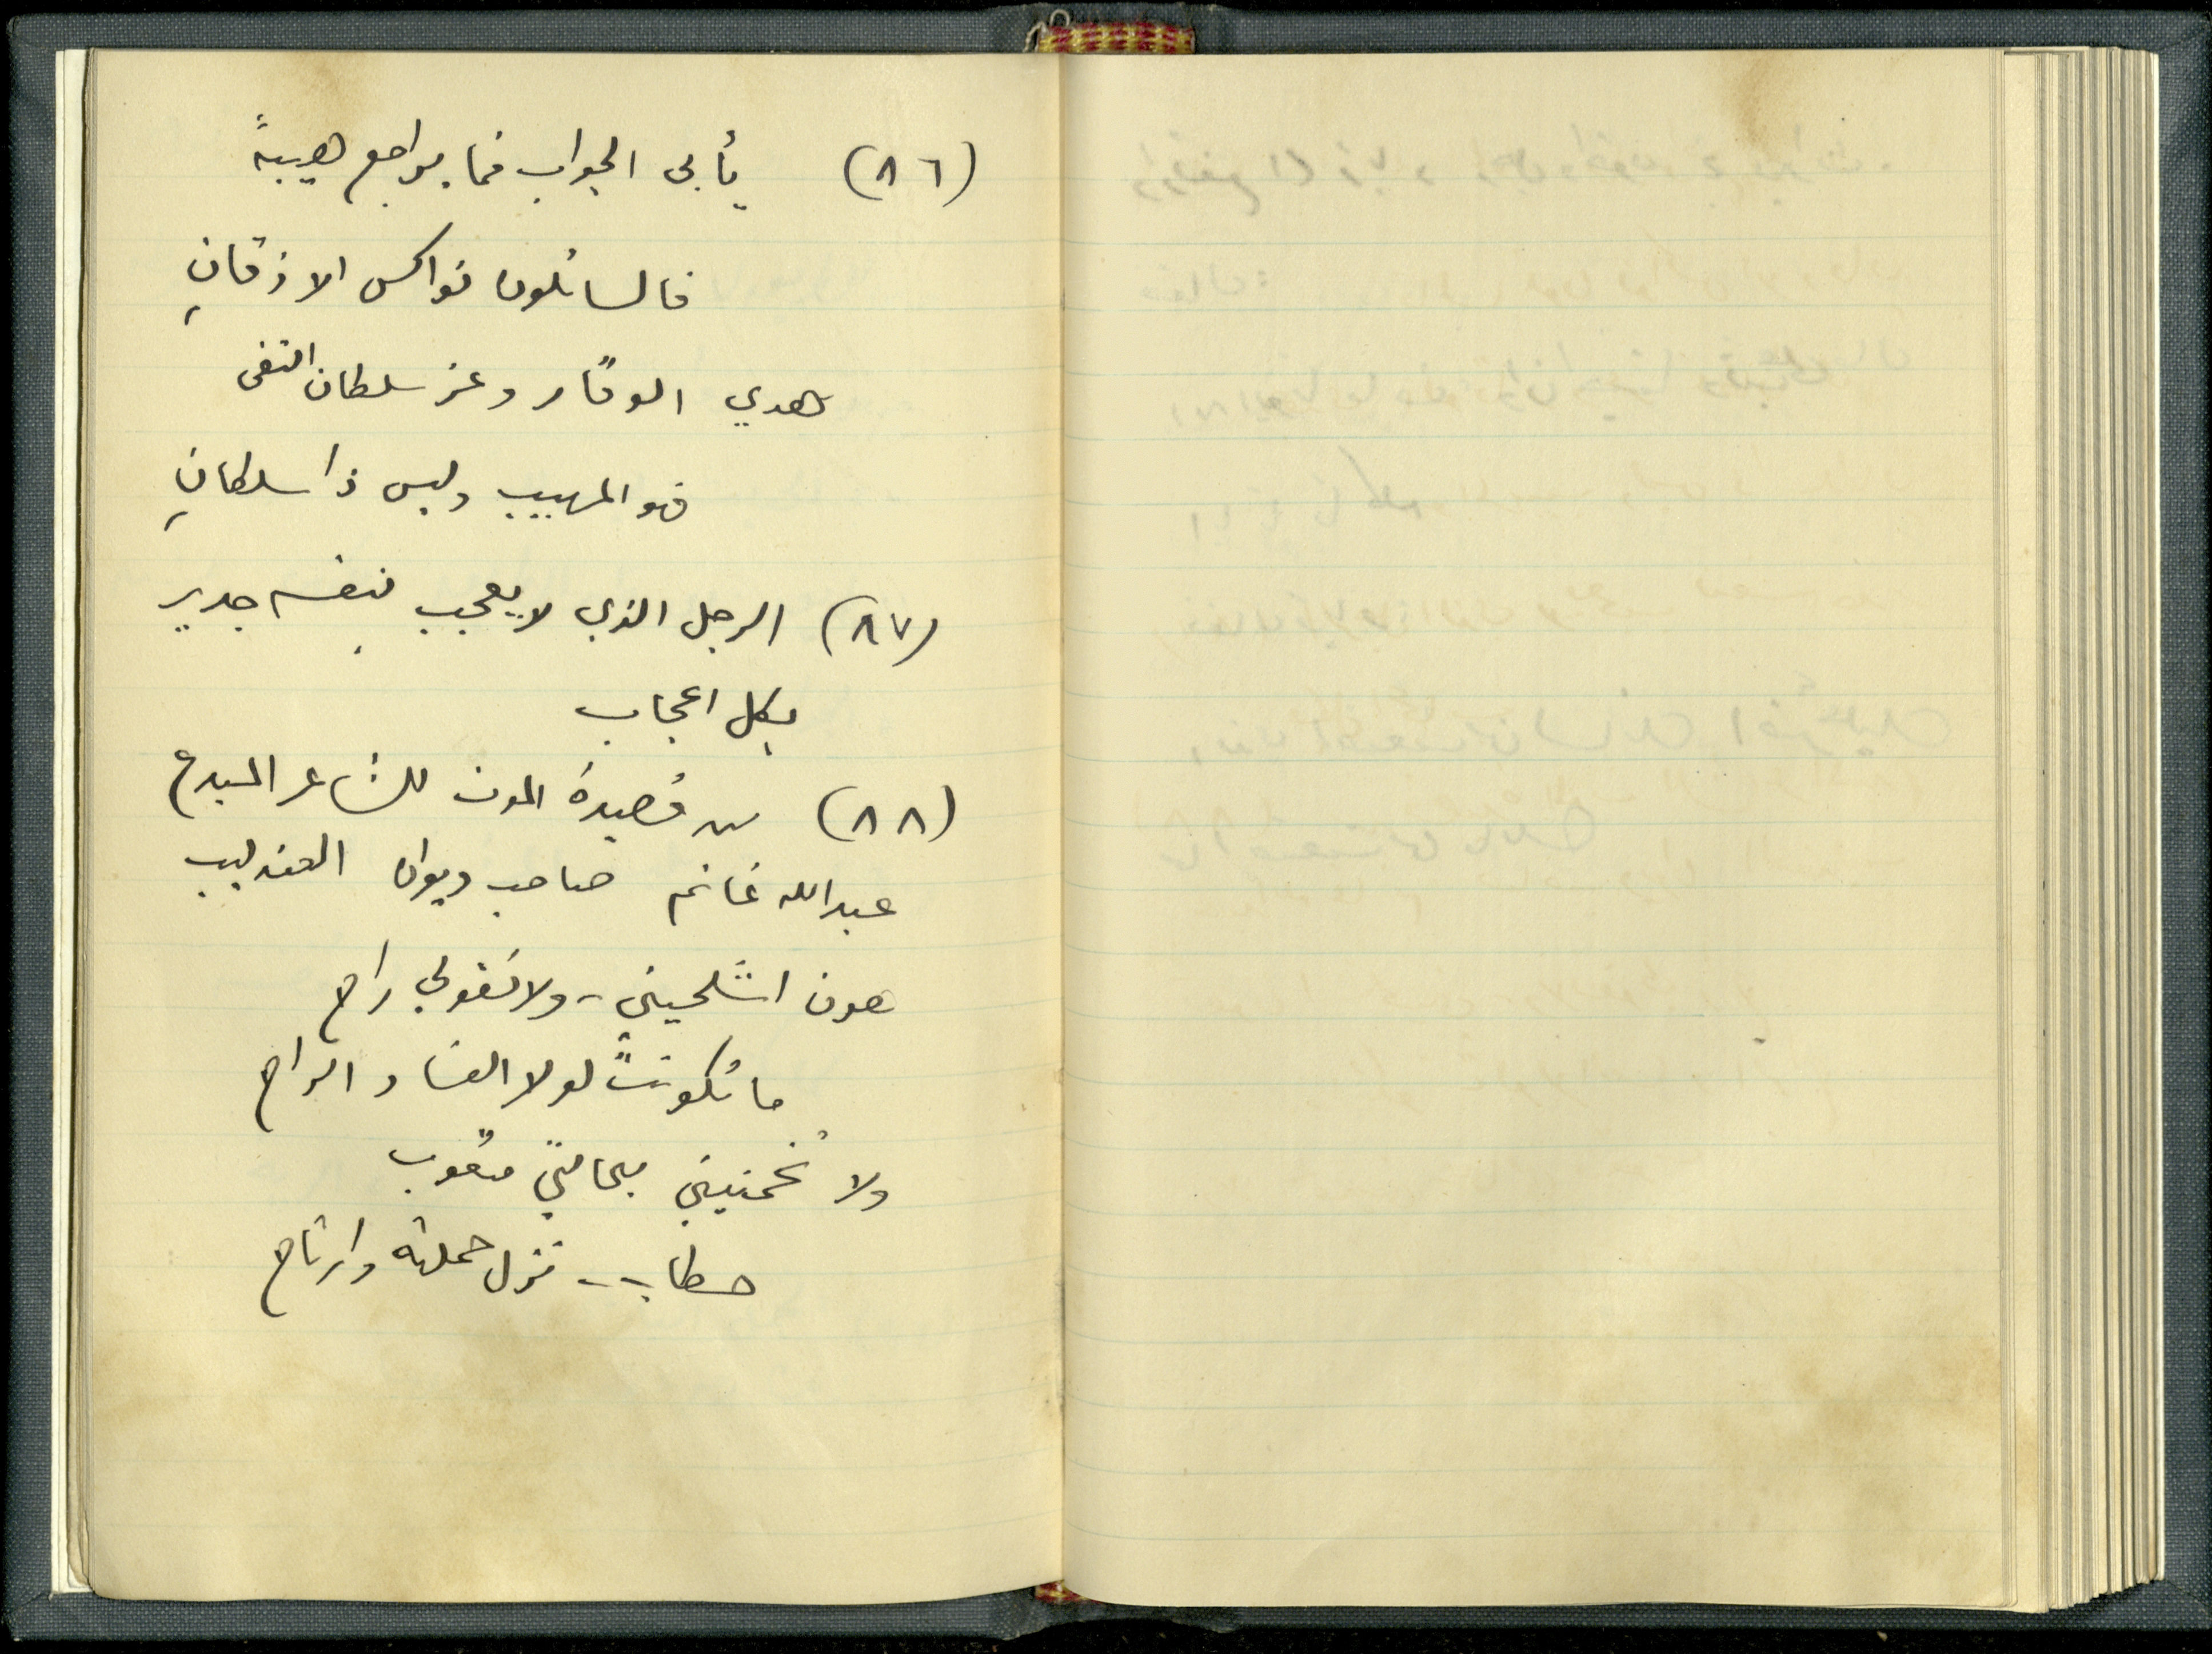 (٨٦) يأبى الجواب فما يراجع هيبةً
فالسائلون نواكس الاذقانِ
هدي الوقار وعز سلطان التقى
فهو المهيب وليس ذا سلطانِ
(٨٧) الرجل الذي لا يعجب بنفسه جدير
بكل اعجاب
(٨٨) من قصيدة الموت للشاعر المبدع
عبدالله غانم صاحب ديوان العندليب
هون اشلحيني - ولا تقولي راح
ما تكونت لولا الفساد الراح
ولا تخمنيني بحالتي متعوب
حطاب - نزل حملته وارتاح